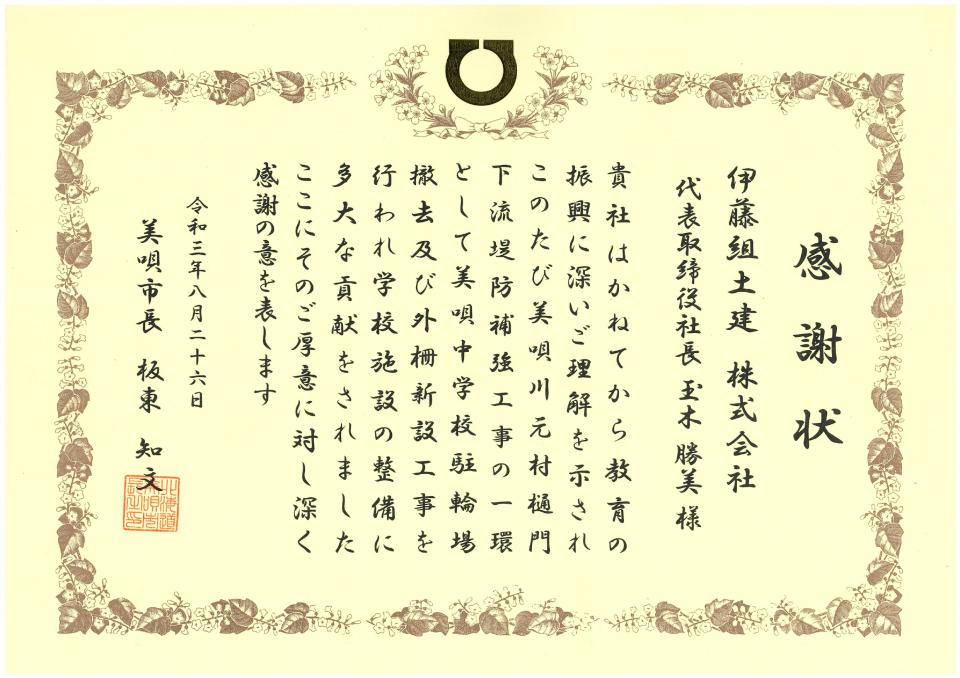 感謝状
伊藤組土建 株式会社
代表取締役社長 玉木 勝美 様
貴社はかねてから教育の
振興に深いご理解を示され
このたび美唄川元村樋門
下流堤防補強工事の一環
として美唄中学校駐輪場
撤去及び外柵新設工事を
行われ学校施設の整備に
多大な貢献をされました
ここにそのご厚意に対し深く
感謝の意を表します
令和三年八月二十六日
美唄市長 板東 知文
北海道
美唄市
長之印